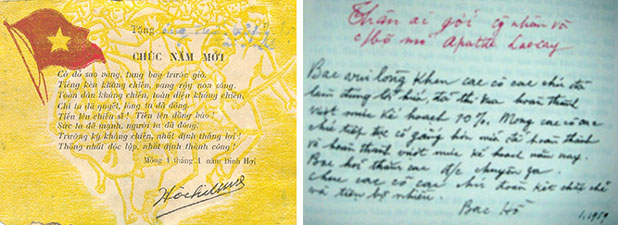 Tặng
CHÚC NĂM MỚI
Cờ đỏ sao vàng, tung bay trước gió,
Tiếng kèn kháng chiến, vang dậy non sông.
Toàn dân kháng chiến, toàn diện kháng chiến,
Chí ta đã quyết, lòng ta đã đồng.
Tiến lên chiến sĩ ! Tiến lên đồng bào !
Sức ta đã mạnh, người ta đã đông.
Trường kỳ kháng chiến, nhất định thắng lợi !
Thống nhất độc lập, nhất định thành công !
Mồng 1 tháng 1 năm Đinh Hợi
Thân ái gửi công nhân và
cán bộ mỏ Apatite Lao cay
Bác vui lòng khen các cô các chú đã
làm đúng lời hứa, đã thi đua hoàn thành
vượt mức kế hoạch 10%. Mong các cô các
chú tiếp tục cố gắng hơn nữa để hoàn thành
và hoàn thành vượt mức kế hoạch năm nay.
Bác hỏi thăm các đ/c chuyên gia.
Chúc các cô các chú đoàn kết chặt chẽ
và tiến bộ nhiều.
Bác Hồ
1.1959